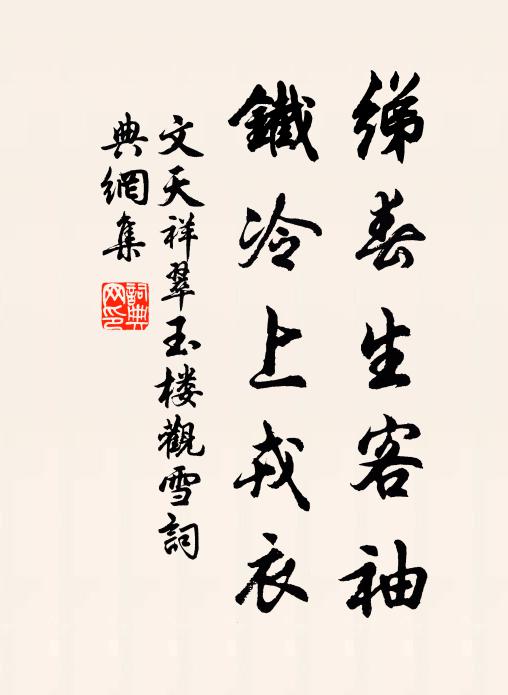 綈春生客袖
鐵冷上戎衣
文天祥翠玉楼觀雪詞
典網集
詞典网印